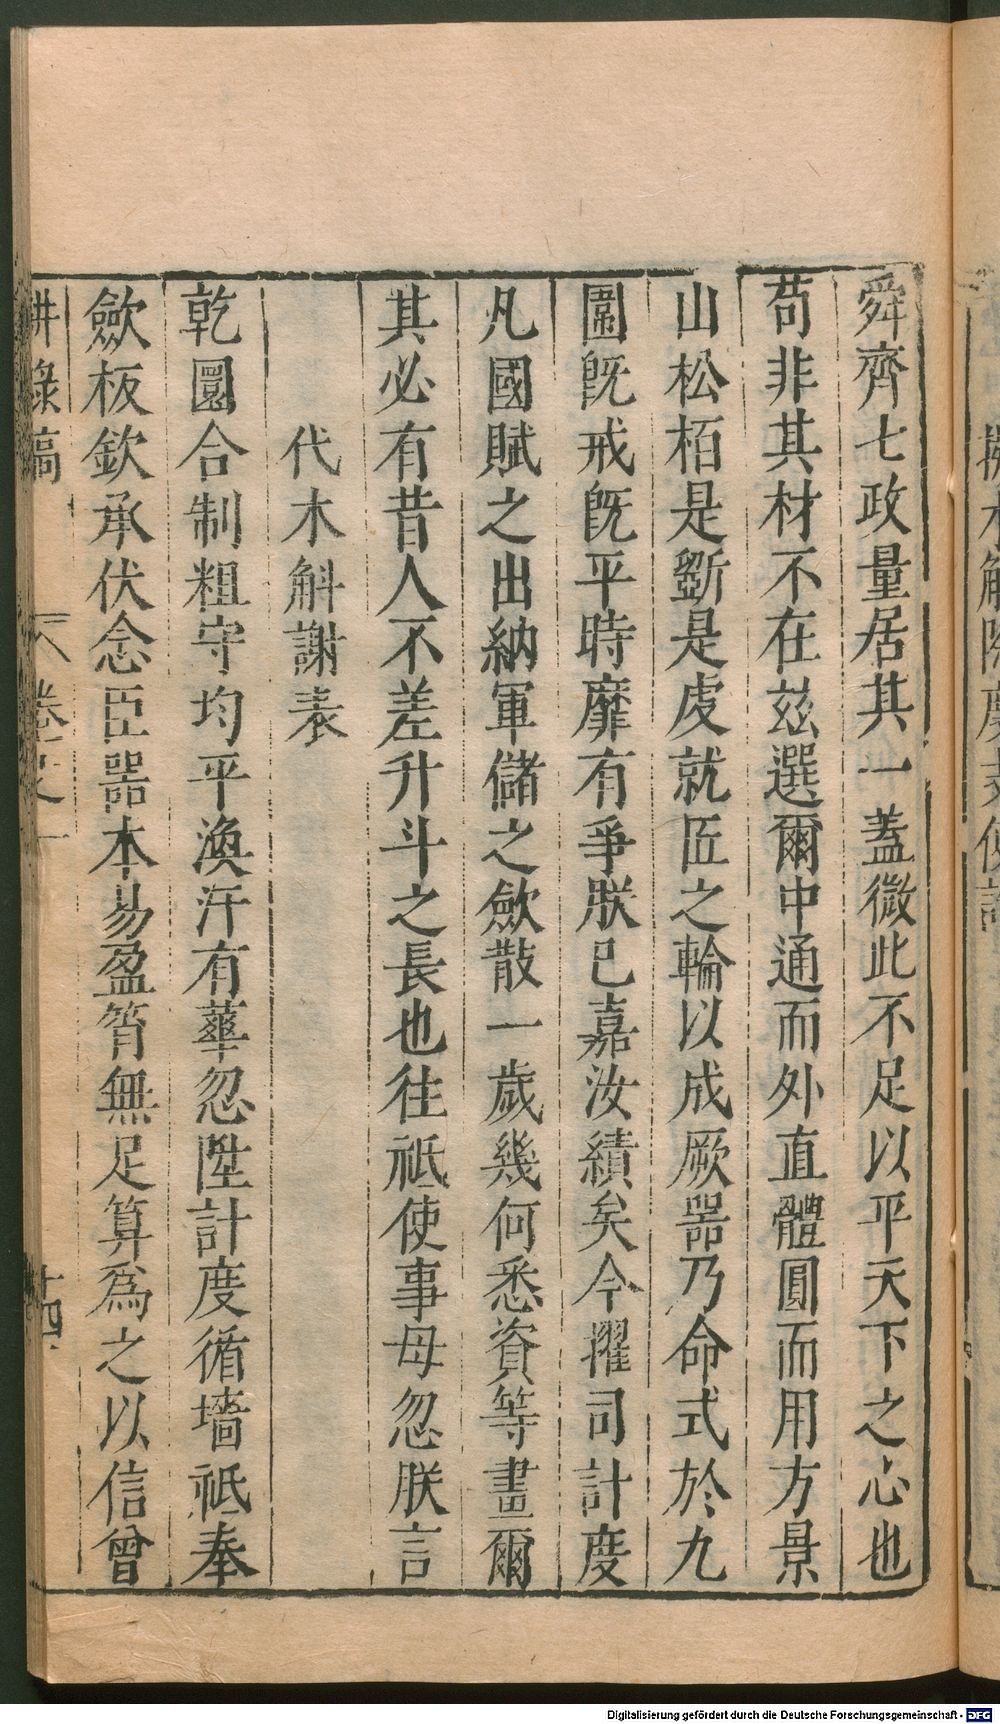 舜齊七政量居其一蓋微此不足以平天下之心也
苟非其材不在玆選爾中通而外直體圓而用方景
山松栢是斲是虔就匠之輪以成厥噐乃命式於九
圍旣戒旣平時靡有爭朕已嘉汝績矣今擢司計度
凡國賦之出納軍儲之斂散一歲幾何悉資等畫爾
其必有昔人不差升斗之長也往祗使事毋忽朕言
代木斛謝表
乾圜合制粗守均平渙汗有蕐忽陞計度循墻祗奉
斂板欽承伏念臣噐本易盈筲無足算爲之以信曾
耕祿稿 卷之一 十四
Digitalisierung gefördert durch die Deutsche Forschungsgemeinschaft - DFG